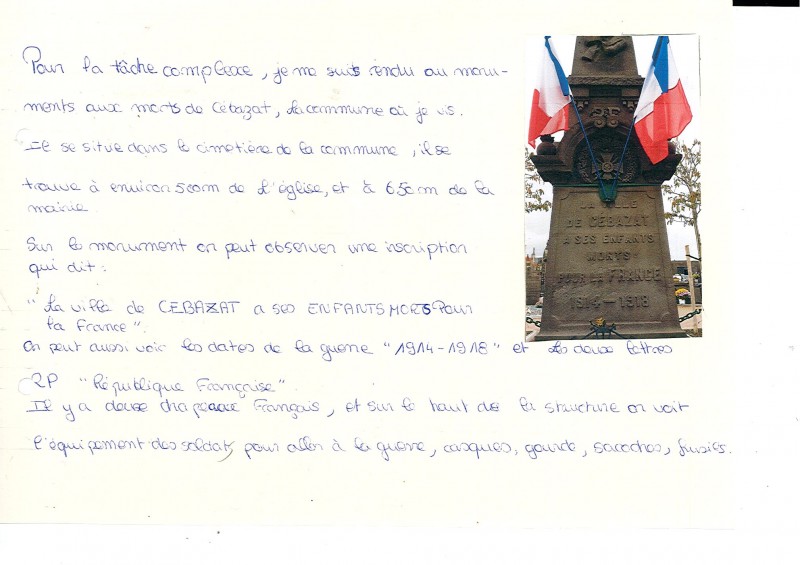 Pour la tâche complexe, je me suis rendu au monu-
ments aux morts de Cébazat, la commune où je vis.
Il se situe dans le cimetière de la commune, il se
trouve à environ 500m de l'église, et à 650m de la
mairie.
Sur le monument on peut observer une inscription
qui dit :
"La ville de CEBAZAT a ses ENFANTS MORTS Pour
la France".
On peut aussi voir les dates de la guerre "1914-1918" et les deux lettres
RP "République Française".
Il y a deux drapeaux Français, et sur le haut de la structure on voit
l'équipement des soldats pour aller à la guerre, casques, gourde, sacoches, fusils.
LA VILLE
DE CEBAZAT
A SES ENFANTS
MORTS
POUR LA FRANCE
1914-1918